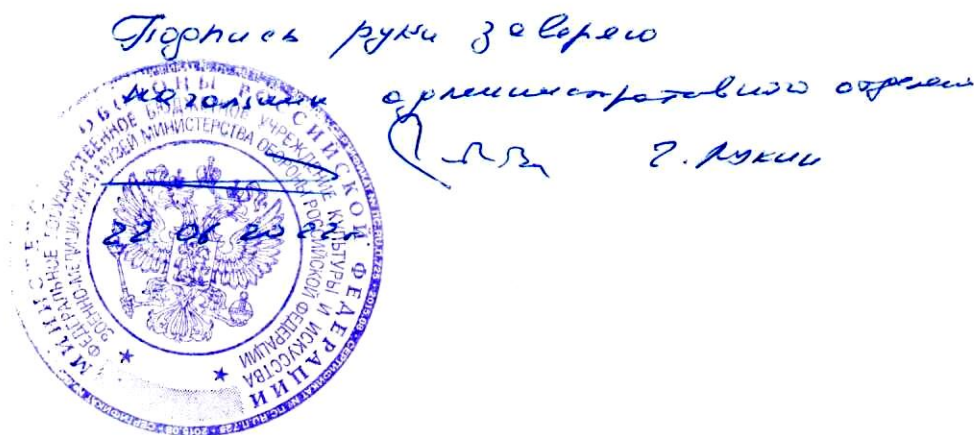 Подпись руки заверяю
Начальник административного отделения
22 06 2022г
МИНИСТЕРСТВО ОБОРОНЫ РОССИЙСКОЙ ФЕДЕРАЦИИ
ФЕДЕРАЛЬНОЕ ГОСУДАРСТВЕННОЕ БЮДЖЕТНОЕ УЧРЕЖДЕНИЕ КУЛЬТУРЫ И ИСКУССТВА
ВОЕННО-МЕДИЦИНСКИЙ МУЗЕЙ МИНИСТЕРСТВА ОБОРОНЫ РОССИЙСКОЙ ФЕДЕРАЦИИ